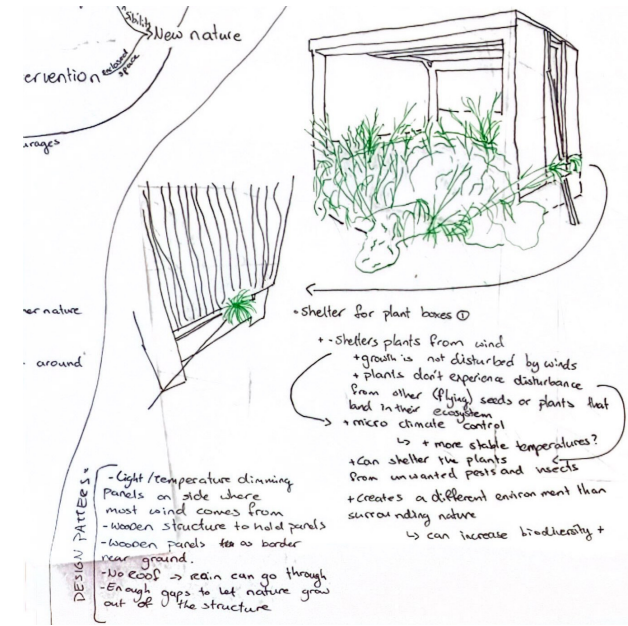 New nature
ervention enclosed space
urages
er nature
around
• Shelter for plant boxes ①
+ - Shelters plants from wind
+ growth is not disturbed by winds
+ plants don't experience disturbance
from other (flying) seeds or plants that
land in their ecosystem
+ micro climate control
↳ + more stable temperatures?
+ Can shelter the plants
from unwanted pests and insects
+ creates a different environment than
surrounding nature
↳ can increase biodiversity +
DESIGN PATTERS *
- Light/temperature dimming
panels on side where
most wind comes from
- Wooden structure to hold panels
- Wooden panels as border
near ground.
- No roof → rain can go through
- Enough gaps to let nature grow
out of the structure